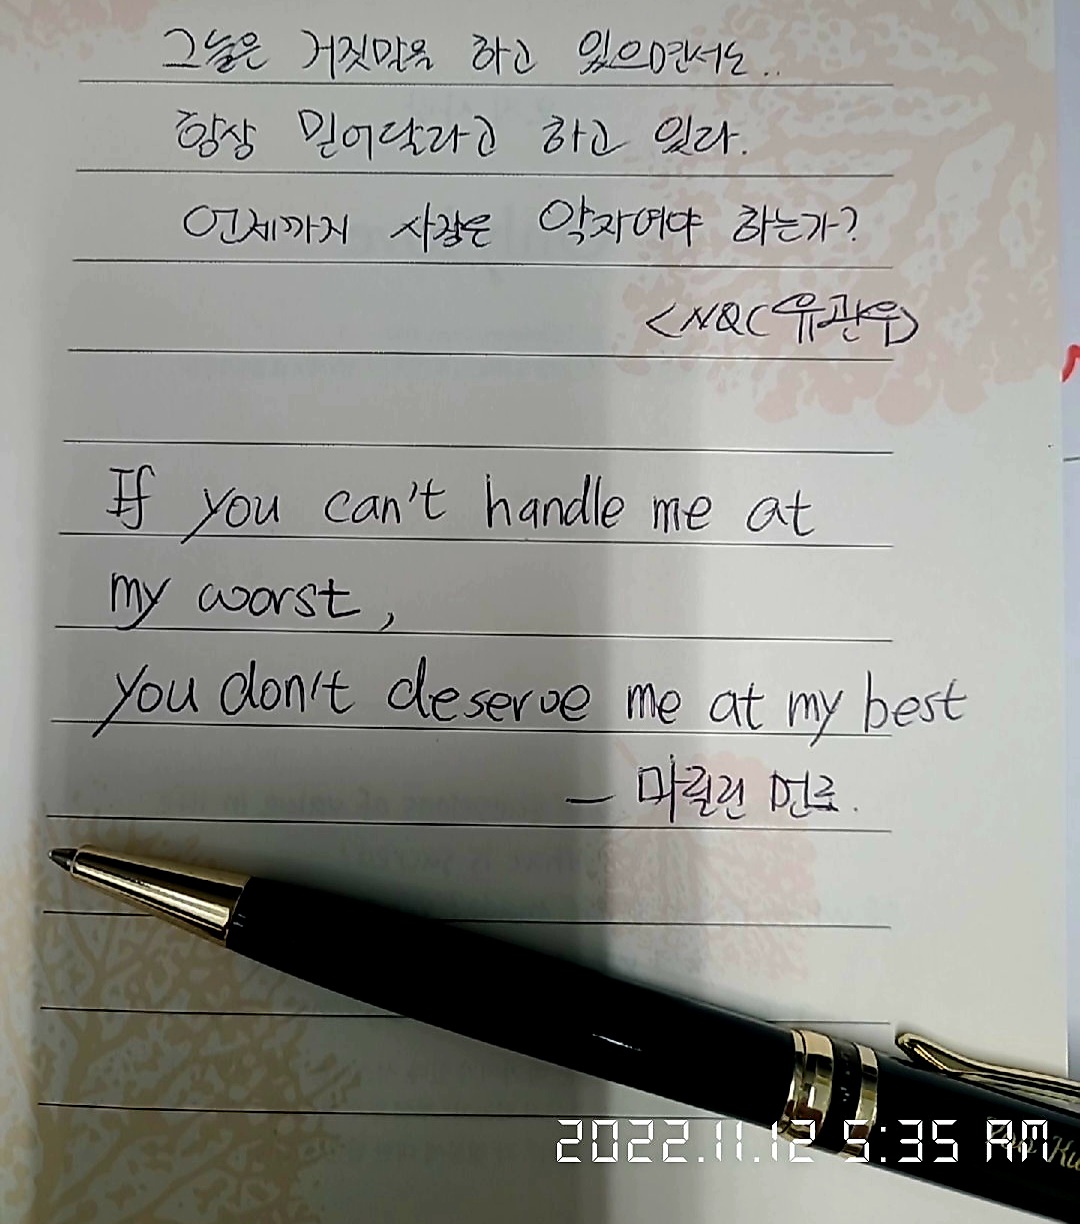 그늘은 거짓말을 하고 있으면서도..
항상 믿어달라고 하고 있다.
언제까지 사랑은 약자여야 하는가?
<NQC 유관우>
If you can't handle me at
my worst,
you don't deserve me at my best
— 마릴린 먼로.
2022.11.12 5:35 AM